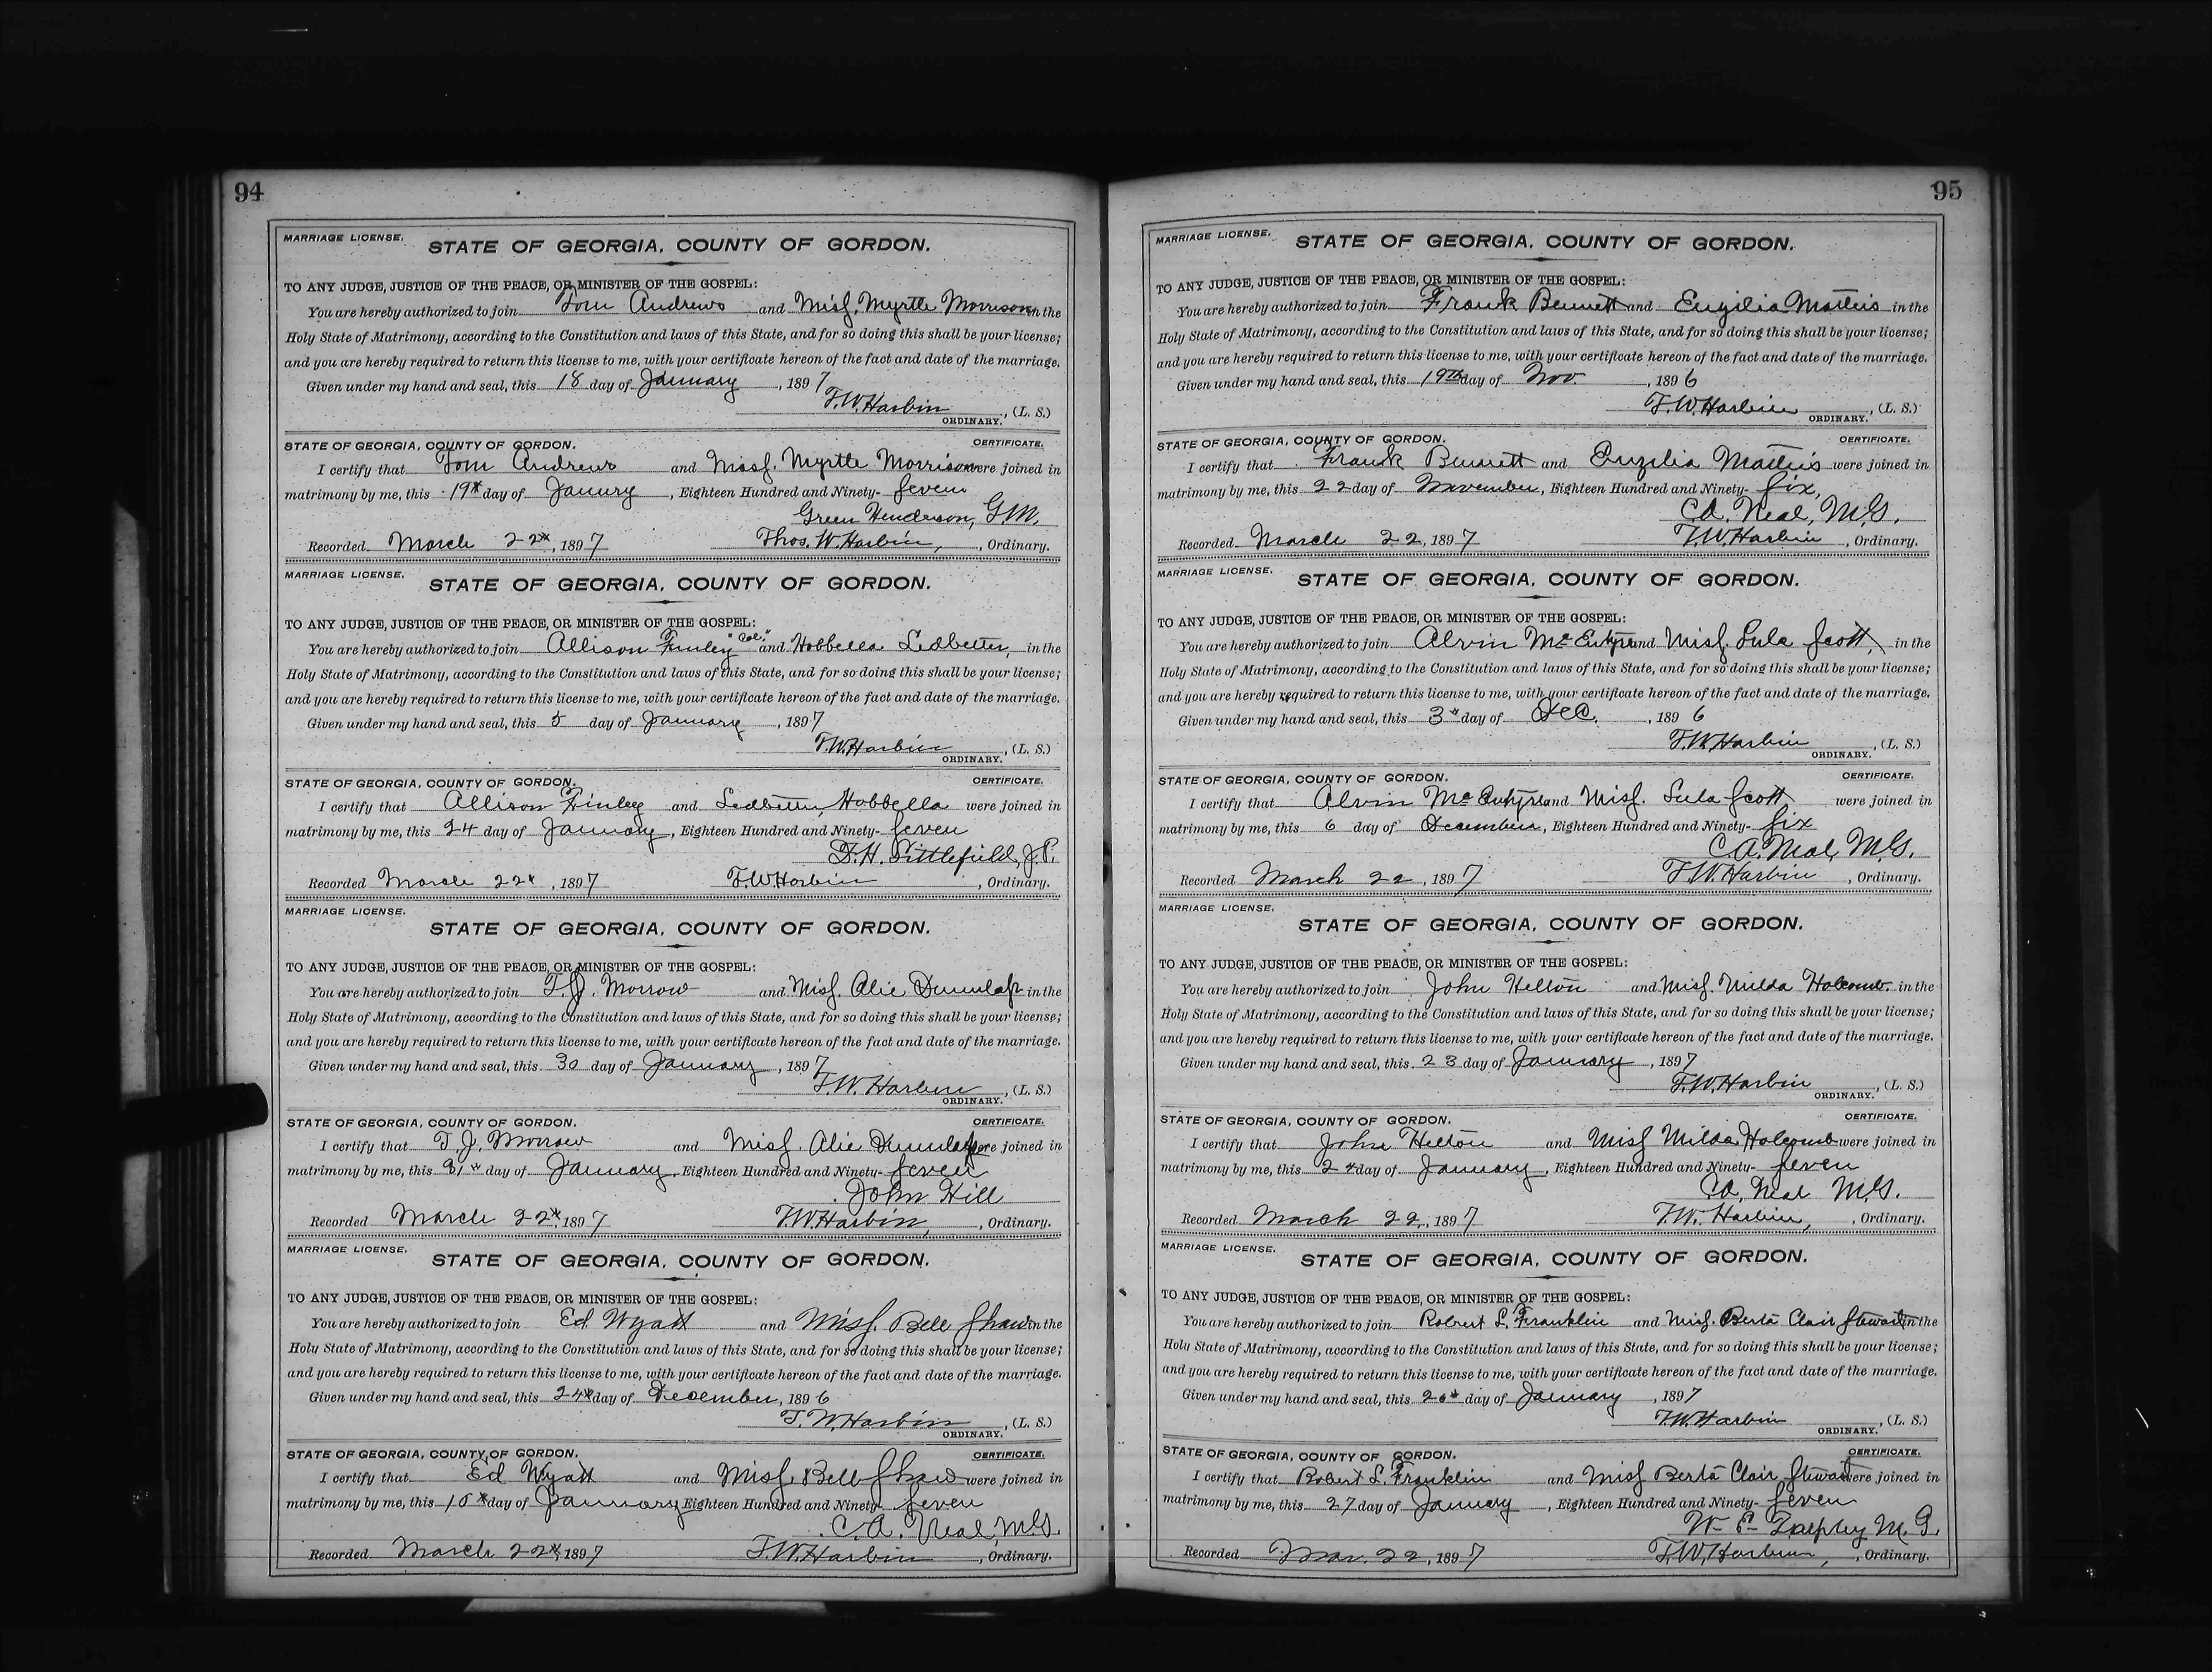 94
MARRIAGE LICENSE.
STATE OF GEORGIA, COUNTY OF GORDON.
TO ANY JUDGE, JUSTICE OF THE PEACE, OR MINISTER OF THE GOSPEL:
You are hereby authorized to join Tom Andrews and Miss. Myrtle Morrison in the
Holy State of Matrimony, according to the Constitution and laws of this State, and for so doing this shall be your license;
and you are hereby required to return this license to me, with your certificate hereon of the fact and date of the marriage.
Given under my hand and seal, this 18 day of January, 1897
T.W. Harbin, (L. S.)
ORDINARY.
STATE OF GEORGIA, COUNTY OF GORDON. CERTIFICATE.
I certify that Tom Andrews and Miss. Myrtle Morrison were joined in
matrimony by me, this 19th day of Janury, Eighteen Hundred and Ninety-seven
Green Henderson, G.M.
Recorded March 22d, 1897 Thos. W. Harbin, Ordinary.
MARRIAGE LICENSE.
STATE OF GEORGIA, COUNTY OF GORDON.
TO ANY JUDGE, JUSTICE OF THE PEACE, OR MINISTER OF THE GOSPEL:
You are hereby authorized to join Allison Finley "Col." and Hobbella Ledbetter, in the
Holy State of Matrimony, according to the Constitution and laws of this State, and for so doing this shall be your license;
and you are hereby required to return this license to me, with your certificate hereon of the fact and date of the marriage.
Given under my hand and seal, this 5 day of January, 1897
T.W. Harbin, (L. S.)
ORDINARY.
STATE OF GEORGIA, COUNTY OF GORDON. CERTIFICATE.
I certify that Allison Finley and Ledbetter, Hobbella were joined in
matrimony by me, this 24 day of January, Eighteen Hundred and Ninety-seven
D.H. Littlefield, J.P.
Recorded March 22d, 1897 T.W. Harbin, Ordinary.
MARRIAGE LICENSE.
STATE OF GEORGIA, COUNTY OF GORDON.
TO ANY JUDGE, JUSTICE OF THE PEACE, OR MINISTER OF THE GOSPEL:
You are hereby authorized to join T.J. Morrow and Miss. Alie Dunnlap in the
Holy State of Matrimony, according to the Constitution and laws of this State, and for so doing this shall be your license;
and you are hereby required to return this license to me, with your certificate hereon of the fact and date of the marriage.
Given under my hand and seal, this 30 day of January, 1897
T.W. Harbin, (L. S.)
ORDINARY.
STATE OF GEORGIA, COUNTY OF GORDON. CERTIFICATE.
I certify that T.J. Morrow and Miss. Alie Dunnlap were joined in
matrimony by me, this 31st day of January, Eighteen Hundred and Ninety-seven
John Hill
Recorded March 22d, 1897 T.W. Harbin, Ordinary.
MARRIAGE LICENSE.
STATE OF GEORGIA, COUNTY OF GORDON.
TO ANY JUDGE, JUSTICE OF THE PEACE, OR MINISTER OF THE GOSPEL:
You are hereby authorized to join Ed Wyatt and Miss. Bell Shaw in the
Holy State of Matrimony, according to the Constitution and laws of this State, and for so doing this shall be your license;
and you are hereby required to return this license to me, with your certificate hereon of the fact and date of the marriage.
Given under my hand and seal, this 24th day of December, 1896
T.W. Harbin, (L. S.)
ORDINARY.
STATE OF GEORGIA, COUNTY OF GORDON. CERTIFICATE.
I certify that Ed Wyatt and Miss. Bell Shaw were joined in
matrimony by me, this 10th day of January, Eighteen Hundred and Ninety-seven
C.A. Neal, M.G.
Recorded March 22d, 1897 T.W. Harbin, Ordinary.
95
MARRIAGE LICENSE.
STATE OF GEORGIA, COUNTY OF GORDON.
TO ANY JUDGE, JUSTICE OF THE PEACE, OR MINISTER OF THE GOSPEL:
You are hereby authorized to join Frank Bennett and Mattis in the
Holy State of Matrimony, according to the Constitution and laws of this State, and for so doing this shall be your license;
and you are hereby required to return this license to me, with your certificate hereon of the fact and date of the marriage.
Given under my hand and seal, this 19th day of Nov., 1896
T.W. Harbin, (L. S.)
ORDINARY.
STATE OF GEORGIA, COUNTY OF GORDON. CERTIFICATE.
I certify that Frank Bennett and Mattis were joined in
matrimony by me, this 22 day of November, Eighteen Hundred and Ninety-six,
C.A. Neal, M.G.
Recorded March 22, 1897 T.W. Harbin, Ordinary.
MARRIAGE LICENSE.
STATE OF GEORGIA, COUNTY OF GORDON.
TO ANY JUDGE, JUSTICE OF THE PEACE, OR MINISTER OF THE GOSPEL:
You are hereby authorized to join Alvin McEntyre and Miss. Lula Scott, in the
Holy State of Matrimony, according to the Constitution and laws of this State, and for so doing this shall be your license;
and you are hereby required to return this license to me, with your certificate hereon of the fact and date of the marriage.
Given under my hand and seal, this 3d day of Dec., 1896
T.W. Harbin, (L. S.)
ORDINARY.
STATE OF GEORGIA, COUNTY OF GORDON. CERTIFICATE.
I certify that Alvin McEntyre and Miss. Lula Scott were joined in
matrimony by me, this 6 day of December, Eighteen Hundred and Ninety-six
C.A. Neal, M.G.
Recorded March 22, 1897 T.W. Harbin, Ordinary.
MARRIAGE LICENSE.
STATE OF GEORGIA, COUNTY OF GORDON.
TO ANY JUDGE, JUSTICE OF THE PEACE, OR MINISTER OF THE GOSPEL:
You are hereby authorized to join John Helton and Miss. Milda Holcomb. in the
Holy State of Matrimony, according to the Constitution and laws of this State, and for so doing this shall be your license;
and you are hereby required to return this license to me, with your certificate hereon of the fact and date of the marriage.
Given under my hand and seal, this 23 day of January, 1897
T.W. Harbin, (L. S.)
ORDINARY.
STATE OF GEORGIA, COUNTY OF GORDON. CERTIFICATE.
I certify that John Helton and Miss Milda Holcomb were joined in
matrimony by me, this 24 day of January, Eighteen Hundred and Ninety-seven
C.A. Neal M.G.
Recorded March 22, 1897 T.W. Harbin, Ordinary.
MARRIAGE LICENSE.
STATE OF GEORGIA, COUNTY OF GORDON.
TO ANY JUDGE, JUSTICE OF THE PEACE, OR MINISTER OF THE GOSPEL:
You are hereby authorized to join Robert L. Franklin and Miss. Berta Clair Stewart in the
Holy State of Matrimony, according to the Constitution and laws of this State, and for so doing this shall be your license;
and you are hereby required to return this license to me, with your certificate hereon of the fact and date of the marriage.
Given under my hand and seal, this 26th day of January, 1897
T.W. Harbin, (L. S.)
ORDINARY.
STATE OF GEORGIA, COUNTY OF GORDON. CERTIFICATE.
I certify that Robert L. Franklin and Miss Berta Clair Stewart were joined in
matrimony by me, this 27 day of January, Eighteen Hundred and Ninety-seven
W. P. M.G.
Recorded Mar. 22, 1897 T.W. Harbin, Ordinary.